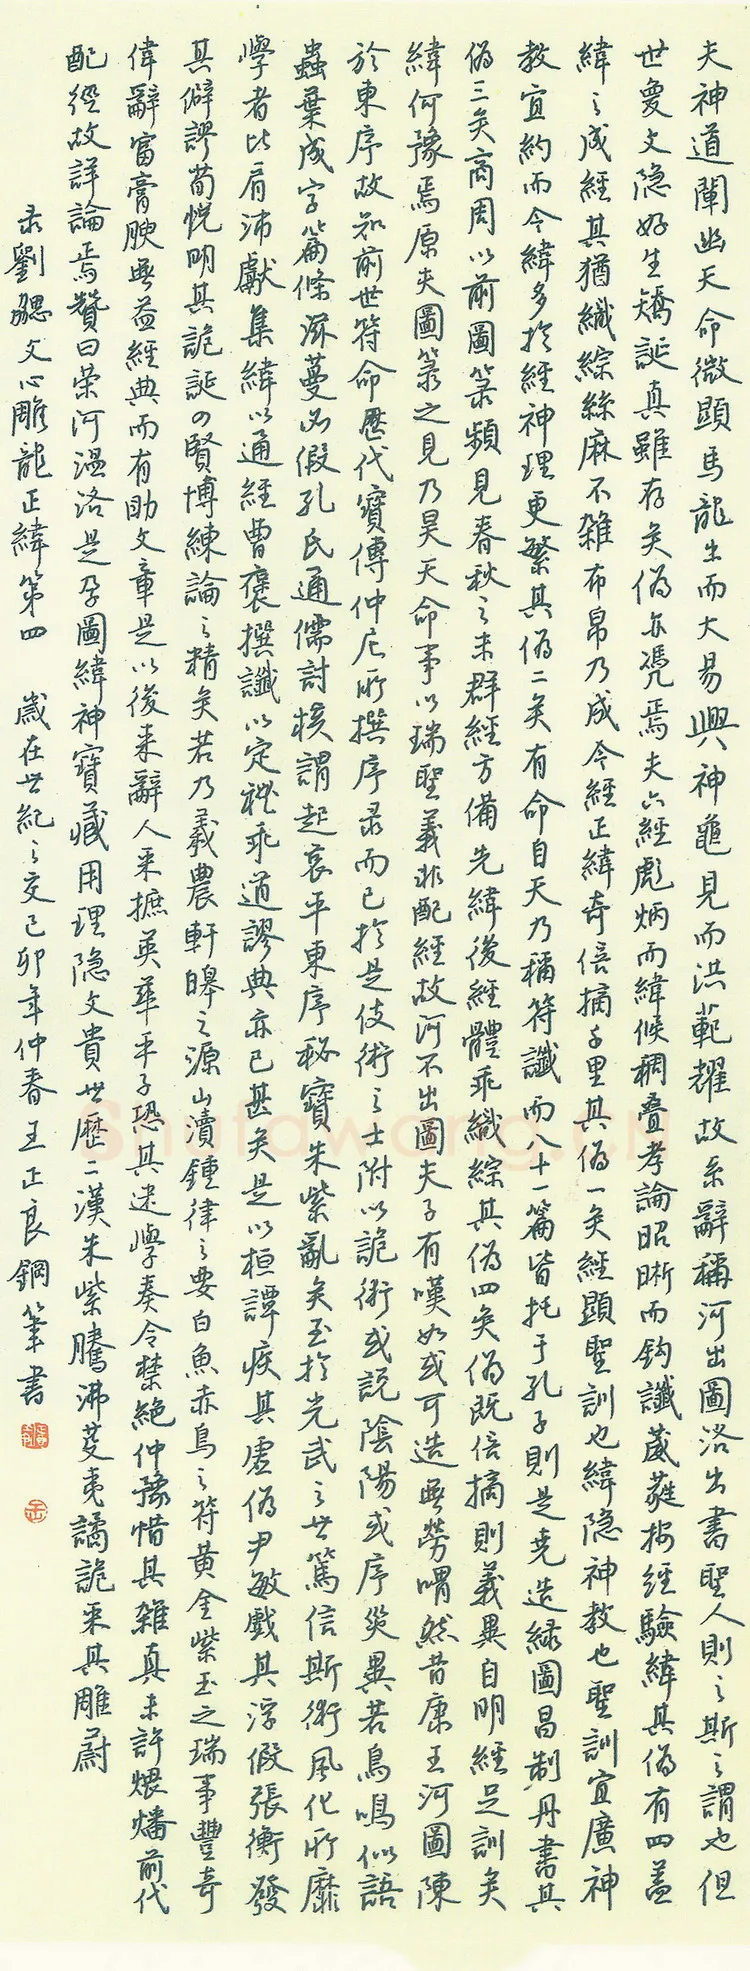 夫神道闡幽天命微顯馬龍出而大易興神龜見而洪範耀故系辭稱河出圖洛出書聖人則之斯之謂也但
世夐文隐好生矯誕真雖存矣偽亦憑焉夫六經彪炳而緯候稠疊孝論昭晣而鈎讖葳蕤按經驗緯其偽有四蓋
緯之成經其猶織綜絲麻不雜布帛乃成今經正緯奇倍摘千里其偽一矣經顯聖訓也緯隐神教也聖訓宜廣神
教宜約而今緯多於經神理更繁其偽二矣有命自天乃稱符讖而八十一篇皆托于孔子則是堯造緑圖昌制丹書其
偽三矣商周以前圖箓頻見春秋之末群經方備先緯後經體乖織綜其偽四矣偽既倍摘則義異自明經足訓矣
緯何豫焉原夫圖箓之見乃昊天命事以瑞聖義非配經故河不出圖夫子有嘆如或可造無勞喟然昔康王河圖陳
於東序故知前世符命歷代寶傳仲尼所撰序录而已於是伎術之士附以詭術或説陰陽或序災異若鳥鳴似語
蟲葉成字篇條滋蔓必假孔氏通儒討核謂起哀平東序秘寶朱紫亂矣至於光武之世篤信斯術風化所靡
學者比肩沛獻集緯以通經曹褒撰讖以定禮乖道謬典亦已甚矣是以桓譚疾其虚偽尹敏戲其浮假張衡發
其僻謬荀悦明其詭誕四賢博練論之精矣若乃羲農軒皞之源山瀆鍾律之要白魚赤烏之符黄金紫玉之瑞事豐奇
偉辭富膏腴無益經典而有助文章是以後来辭人采摭英華平子恐其迷學奏令禁絶仲豫惜其雜真未許煨燔前代
配經故詳論焉贊曰荣河温洛是孕圖緯神寶藏用理隐文貴世歷二漢朱紫騰沸芟夷譎詭采其雕蔚
录劉勰文心雕龍正緯第四 歲在世紀之交己卯年仲春王正良鋼筆書
Shufawang.CN